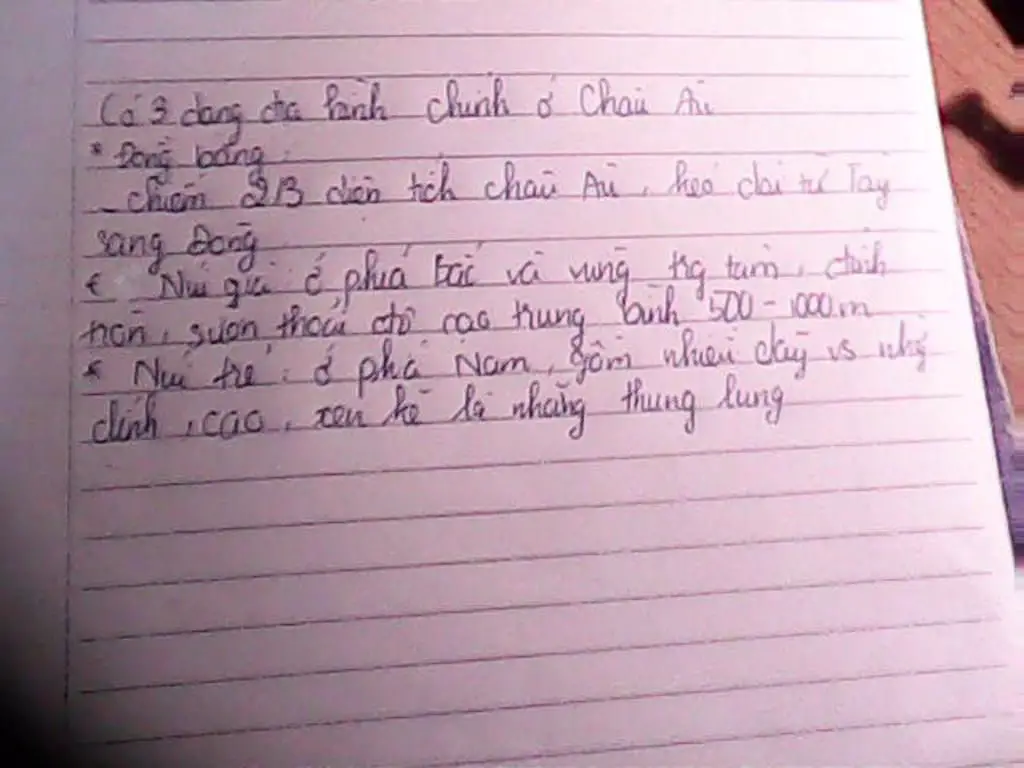 Có 3 dạng địa hình chính ở Châu Âu
* Đồng bằng:
- chiếm 2/3 diện tích châu Âu, kéo dài từ Tây
sang Đông
* Núi già ở phía bắc và vùng trg tâm, đỉnh
tròn, sườn thoải độ cao trung bình 500-1000m
* Núi trẻ: ở phía Nam, gồm nhiều dãy vs nhg
đỉnh, cao, xen kẽ là những thung lũng